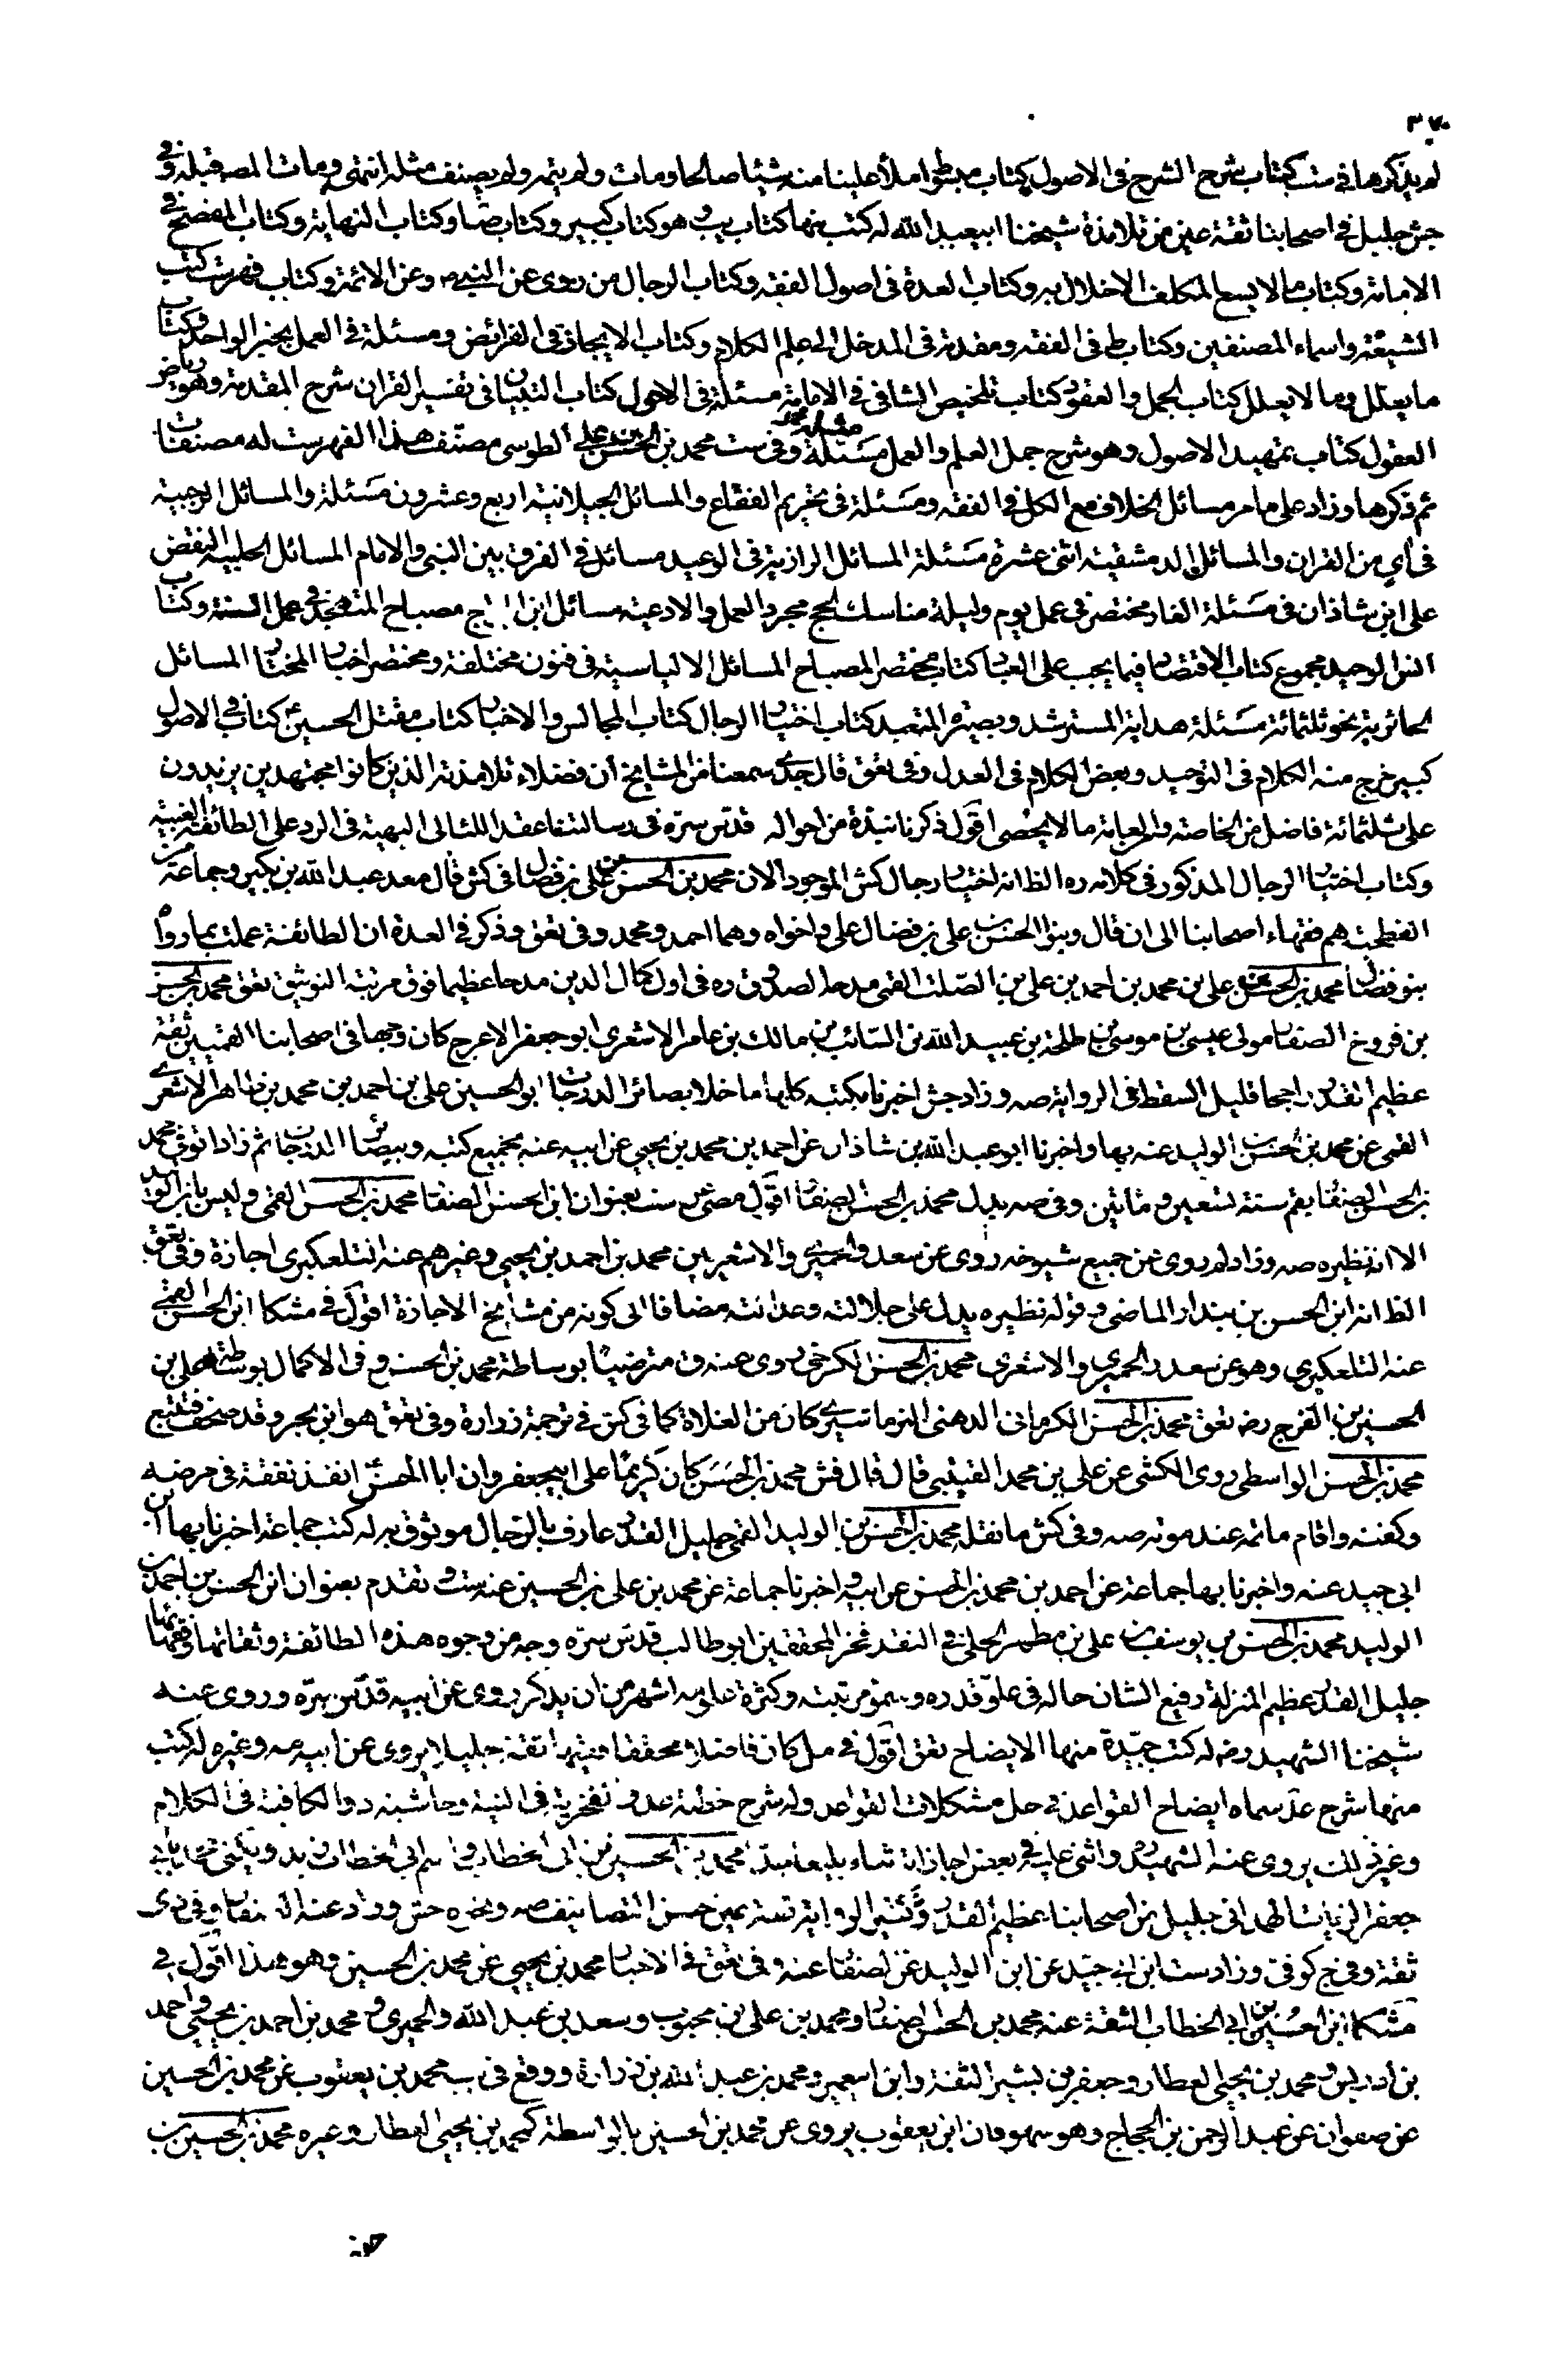 ٣٧٠
لم يذكرها في ست كتاب شرح الشرح في الاصول كتاب مبسوط املأ علينا منه شيئا صالحا ومات ولم يتمه ولم يصنف مثله انتهى ومات المص قبله وفي
جش جليل في اصحابنا ثقة عين من تلامذة شيخنا ابي عبد الله له كتب منها كتاب يب وهو كتاب كبير وكتاب صا وكتاب النهاية وكتاب المفصح في
الامامة وكتاب ما لا يسع المكلف الاخلال به وكتاب العدة في اصول الفقه وكتاب الرجال من روى عن النبي ص وعن الائمة وكتاب فهرست كتب
الشيعة واسماء المصنفين وكتاب ط في الفقه ومقدمة في المدخل الى علم الكلام وكتاب الايجاز في الفرائض ومسئلة في العمل بخبر الواحد وكتاب
ما يعلل وما لا يعلل كتاب الجمل والعقود كتاب تلخيص الشافي في الامامة مسئلة في الاحوال كتاب التبيان في تفسير القران شرح المقدمة وهو رياض
العقول كتاب تمهيد الاصول وهو شرح جمل العلم والعمل مسئلة وفي ست محمد بن الحسن بن علي الطوسي مصنف هذا الفهرست له مصنفات
ثم ذكرها وزاد على ما مر مسائل الخلاف مع الكل في الفقه ومسئلة في تحريم الفقاع والمسائل الجيلانية اربع وعشرون مسئلة والمسائل الرجبية
في اي من القران والمسائل الدمشقية اثنى عشرة مسئلة المسائل الرازية في الوعيد مسائل في الفرق بين النبي والامام المسائل الحلبية النقض
على ابن شاذان في مسئلة الغار مختصر في عمل يوم وليلة مناسك الحج مجرد العمل والادعية مسائل ابن البراج مصباح المتهجد في عمل السنة وكتاب
انس الوحيد مجموع كتاب الاقتصاد فيما يجب على العباد كتاب مختصر المصباح المسائل الالياسية في فنون مختلفة ومختصر اخبار المختار المسائل
الحائرية نحو ثلثمائة مسئلة هداية المسترشد وبصيرة المتعبد كتاب اختيار الرجال كتاب المجالس والاخبار كتاب مقتل الحسين ع كتاب في الاصول
كبير خرج منه الكلام في التوحيد وبعض الكلام في العدل وفي تعق قال جدي سمعنا من المشايخ ان فضلاء تلامذته الذين كانوا مجتهدين يزيدون
على ثلثمائة فاضل من الخاصة ومن العامة ما لا يحصى اقول ذكرنا نبذة من احواله قدس سره في رسالتنا عقد اللئالي البهية في الرد على الطائفة الغبية
وكتاب اختيار الرجال المذكور في كلامه ره الظ انه اختيار رجال كش الموجود الان محمد بن الحسن بن علي بن فضال في كش قال معد عبد الله بن بكير وجماعة من
الفطحية هم فقهاء اصحابنا الى ان قال وبنو الحسن بن علي بن فضال علي واخواه وهما احمد ومحمد وفي تعق وذكر في العدة ان الطائفة عملت بما رواه
بنو فضال محمد بن الحسن بن علي بن محمد بن احمد بن علي بن الصلت القمي مدحه الصدوق ره في اول كمال الدين مدحا عظيما فوق مرتبة التوثيق تعق محمد بن الحسن
بن فروخ الصفار مولى عيسى بن موسى بن طلحة بن عبيد الله بن السائب بن مالك بن عامر الاشعري ابو جعفر الاعرج كان وجها في اصحابنا القميين ثقة
عظيم القدر راجحا قليل السقط في الرواية صه وزاد جش اخبرنا بكتبه كلها ما خلا بصائر الدرجات ابو الحسين علي بن احمد بن محمد بن طاهر الاشعري
القمي عن محمد بن الحسن بن الوليد عنه بها واخبرنا ابو عبد الله بن شاذان عن احمد بن محمد بن يحيى عن ابيه عنه بجميع كتبه وببصائر الدرجات ثم زادا توفي محمد
بن الحسن الصفار بقم سنة تسعين ومائتين وفي صه بدل محمد بن الحسن الصفار اقول مضى عن ست بعنوان ابن الحسن الصفار محمد بن الحسن القمي وليس بابن الوليد
الا انه نظيره صه وزاد لم روى عن جميع شيوخه روى عن سعد والحميري والاشعريين محمد بن احمد بن يحيى وغيرهم عنه التلعكبري اجازة وفي تعق
الظ انه ابن الحسن بن بندار الماضي وقوله نظيره يدل على جلالته وعدالته مضافا الى كونه من مشايخ الاجازة اقول في مشكا ابن الحسن القمي
عنه التلعكبري وهو عن سعد والحميري والاشعري محمد بن الحسن الكرخي روى عنه ق مترضيا بوساطة محمد بن الحسن وفي الاكمال بوساطة علي بن
الحسين بن الفرج رضه تعق محمد بن الحسن الكرماني الدهني النرماشيري كان من الغلاة كما في كش في ترجمة زرارة وفي تعق هو ابن بحر وقد صحف فتتبع
محمد بن الحسن الواسطي روى الكشي عن علي بن محمد القتيبي قال قال فش محمد بن الحسن كان كريما على ابي جعفر وان ابا الحسن انفذ نفقة في مرضه
وكفنه واقام ماتمه عند موته صه وفي كش ما نقله محمد بن الحسن بن الوليد القمي جليل القدر عارف بالرجال موثوق به له كتب جماعة اخبرنا بها ابن
ابي جيد عنه واخبرنا بها جماعة عن احمد بن محمد بن الحسن عن ابيه واخبرنا جماعة عن محمد بن علي بن الحسين عنه ست وتقدم بعنوان ابن الحسن بن احمد بن
الوليد محمد بن الحسن بن يوسف بن علي بن مطهر الحلي في النقد فخر المحققين ابو طالب قدس سره وجه من وجوه هذه الطائفة وثقاتها وفقهائها
جليل القدر عظيم المنزلة رفيع الشان حاله في علو قدره وسمو مرتبته وكثرة علومه اشهر من ان يذكر روى عن ابيه قدس سره وروى عنه
شيخنا الشهيد رضه له كتب جيدة منها الايضاح تعق اقول في مل كان فاضلا محققا فقيها ثقة جليلا يروي عن ابيه عه وغيره له كتب
منها شرح عد سماه ايضاح القواعد في حل مشكلات القواعد وله شرح خطبة عد والفخرية في النية وحاشية د والكافية في الكلام
وغير ذلك يروى عنه الشهيد واثنى عليه في بعض اجازاته ثناء بليغا محمد بن الحسين بن ابي الخطاب واسم ابي الخطاب زيد ويكنى محمد بابي
جعفر الزيات الهمداني جليل من اصحابنا عظيم القدر كثير الرواية ثقة عين حسن التصانيف صه ونحوه جش وزاد عنه الصفار وفي دى
ثقة وفي ج كوفي وزاد ست ابن ابي جيد عن ابن الوليد عن الصفار عنه وفي تعق في الاخبار محمد بن يحيى عن محمد بن الحسين وهو هذا اقول في
مشكا ابن الحسين بن ابي الخطاب الثقة عنه محمد بن الحسن الصفار ومحمد بن علي بن محبوب وسعد بن عبد الله والحميري ومحمد بن احمد بن يحيى واحمد
بن ادريس ومحمد بن يحيى العطار وجعفر بن بشير الثقة وابن ابي عمير ومحمد بن عبد الله بن زرارة ووقع في يب محمد بن يعقوب عن محمد بن الحسين
عن صفوان عن عبد الرحمن بن الحجاج وهو سهو فان ابن يعقوب يروى عن محمد بن الحسين بالواسطة كمحمد بن يحيى العطار وغيره محمد بن الحسين بن